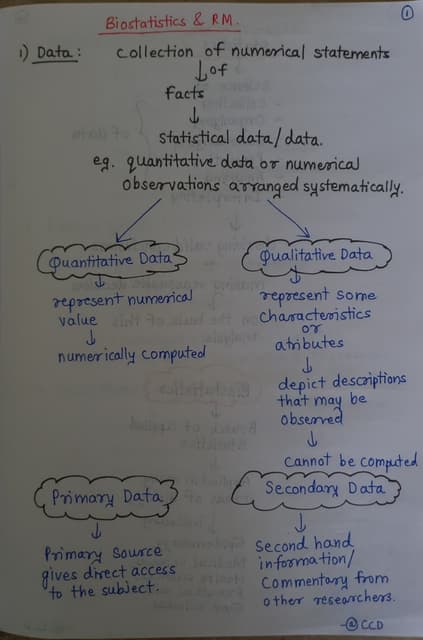 ①
Biostatistics & RM.
1) Data : Collection of numerical statements
of
Facts
statistical data/data.
eg. quantitative data or numerical
observations arranged systematically.
Quantitative Data
represent numerical
value
numerically computed
Qualitative Data
represent some
characteristics
or
atributes
depict descriptions
that may be
observed
cannot be computed
Primary Data
Primary Source
gives direct access
to the subject.
Secondary Data
Second hand
information/
Commentary from
other researchers.
CCD